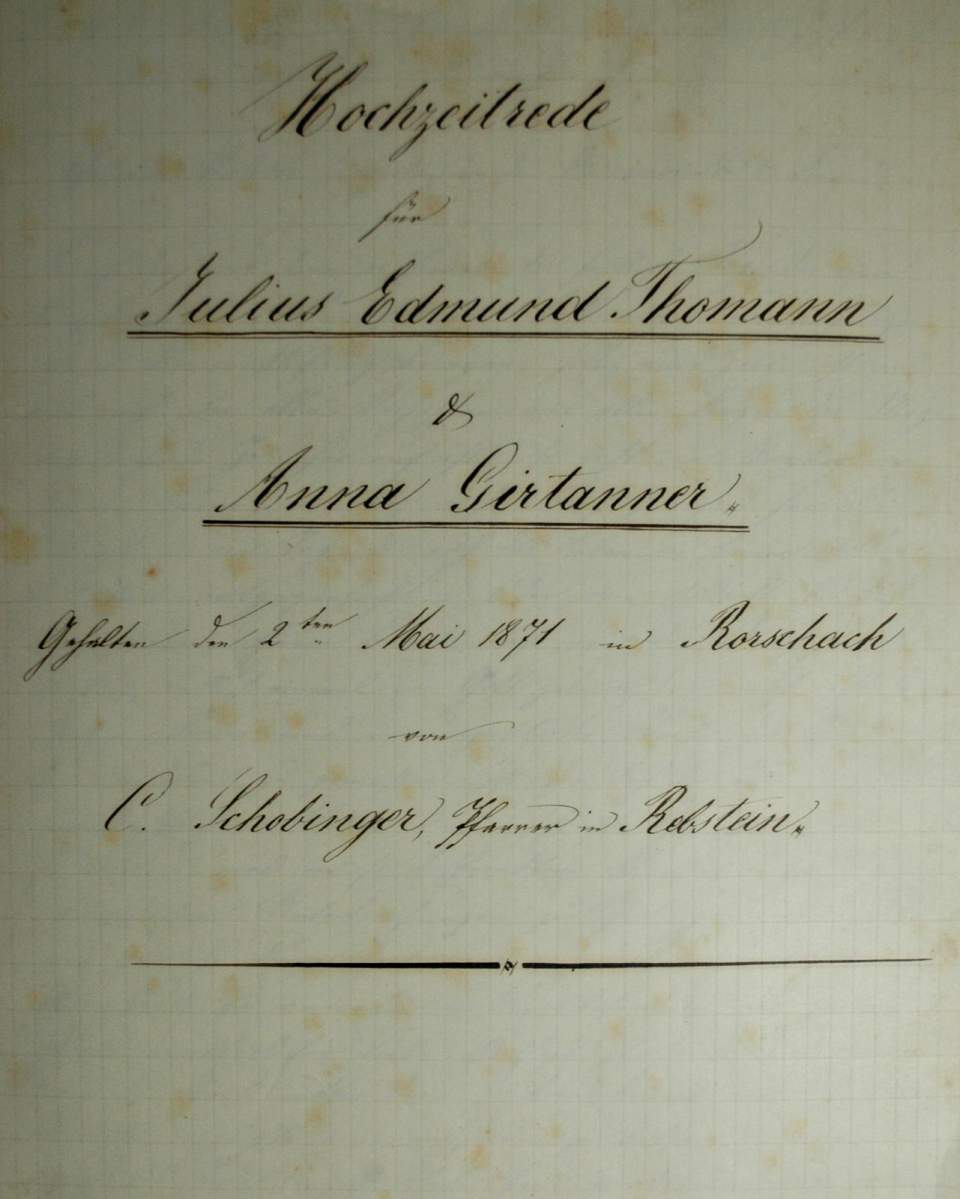 Hochzeitrede
für
Julius Edmund Thomann
&
Anna Girtanner.
Gehalten den 2ten Mai 1871 in Rorschach
von
C. Schobinger, Pfarrer in Rebstein.